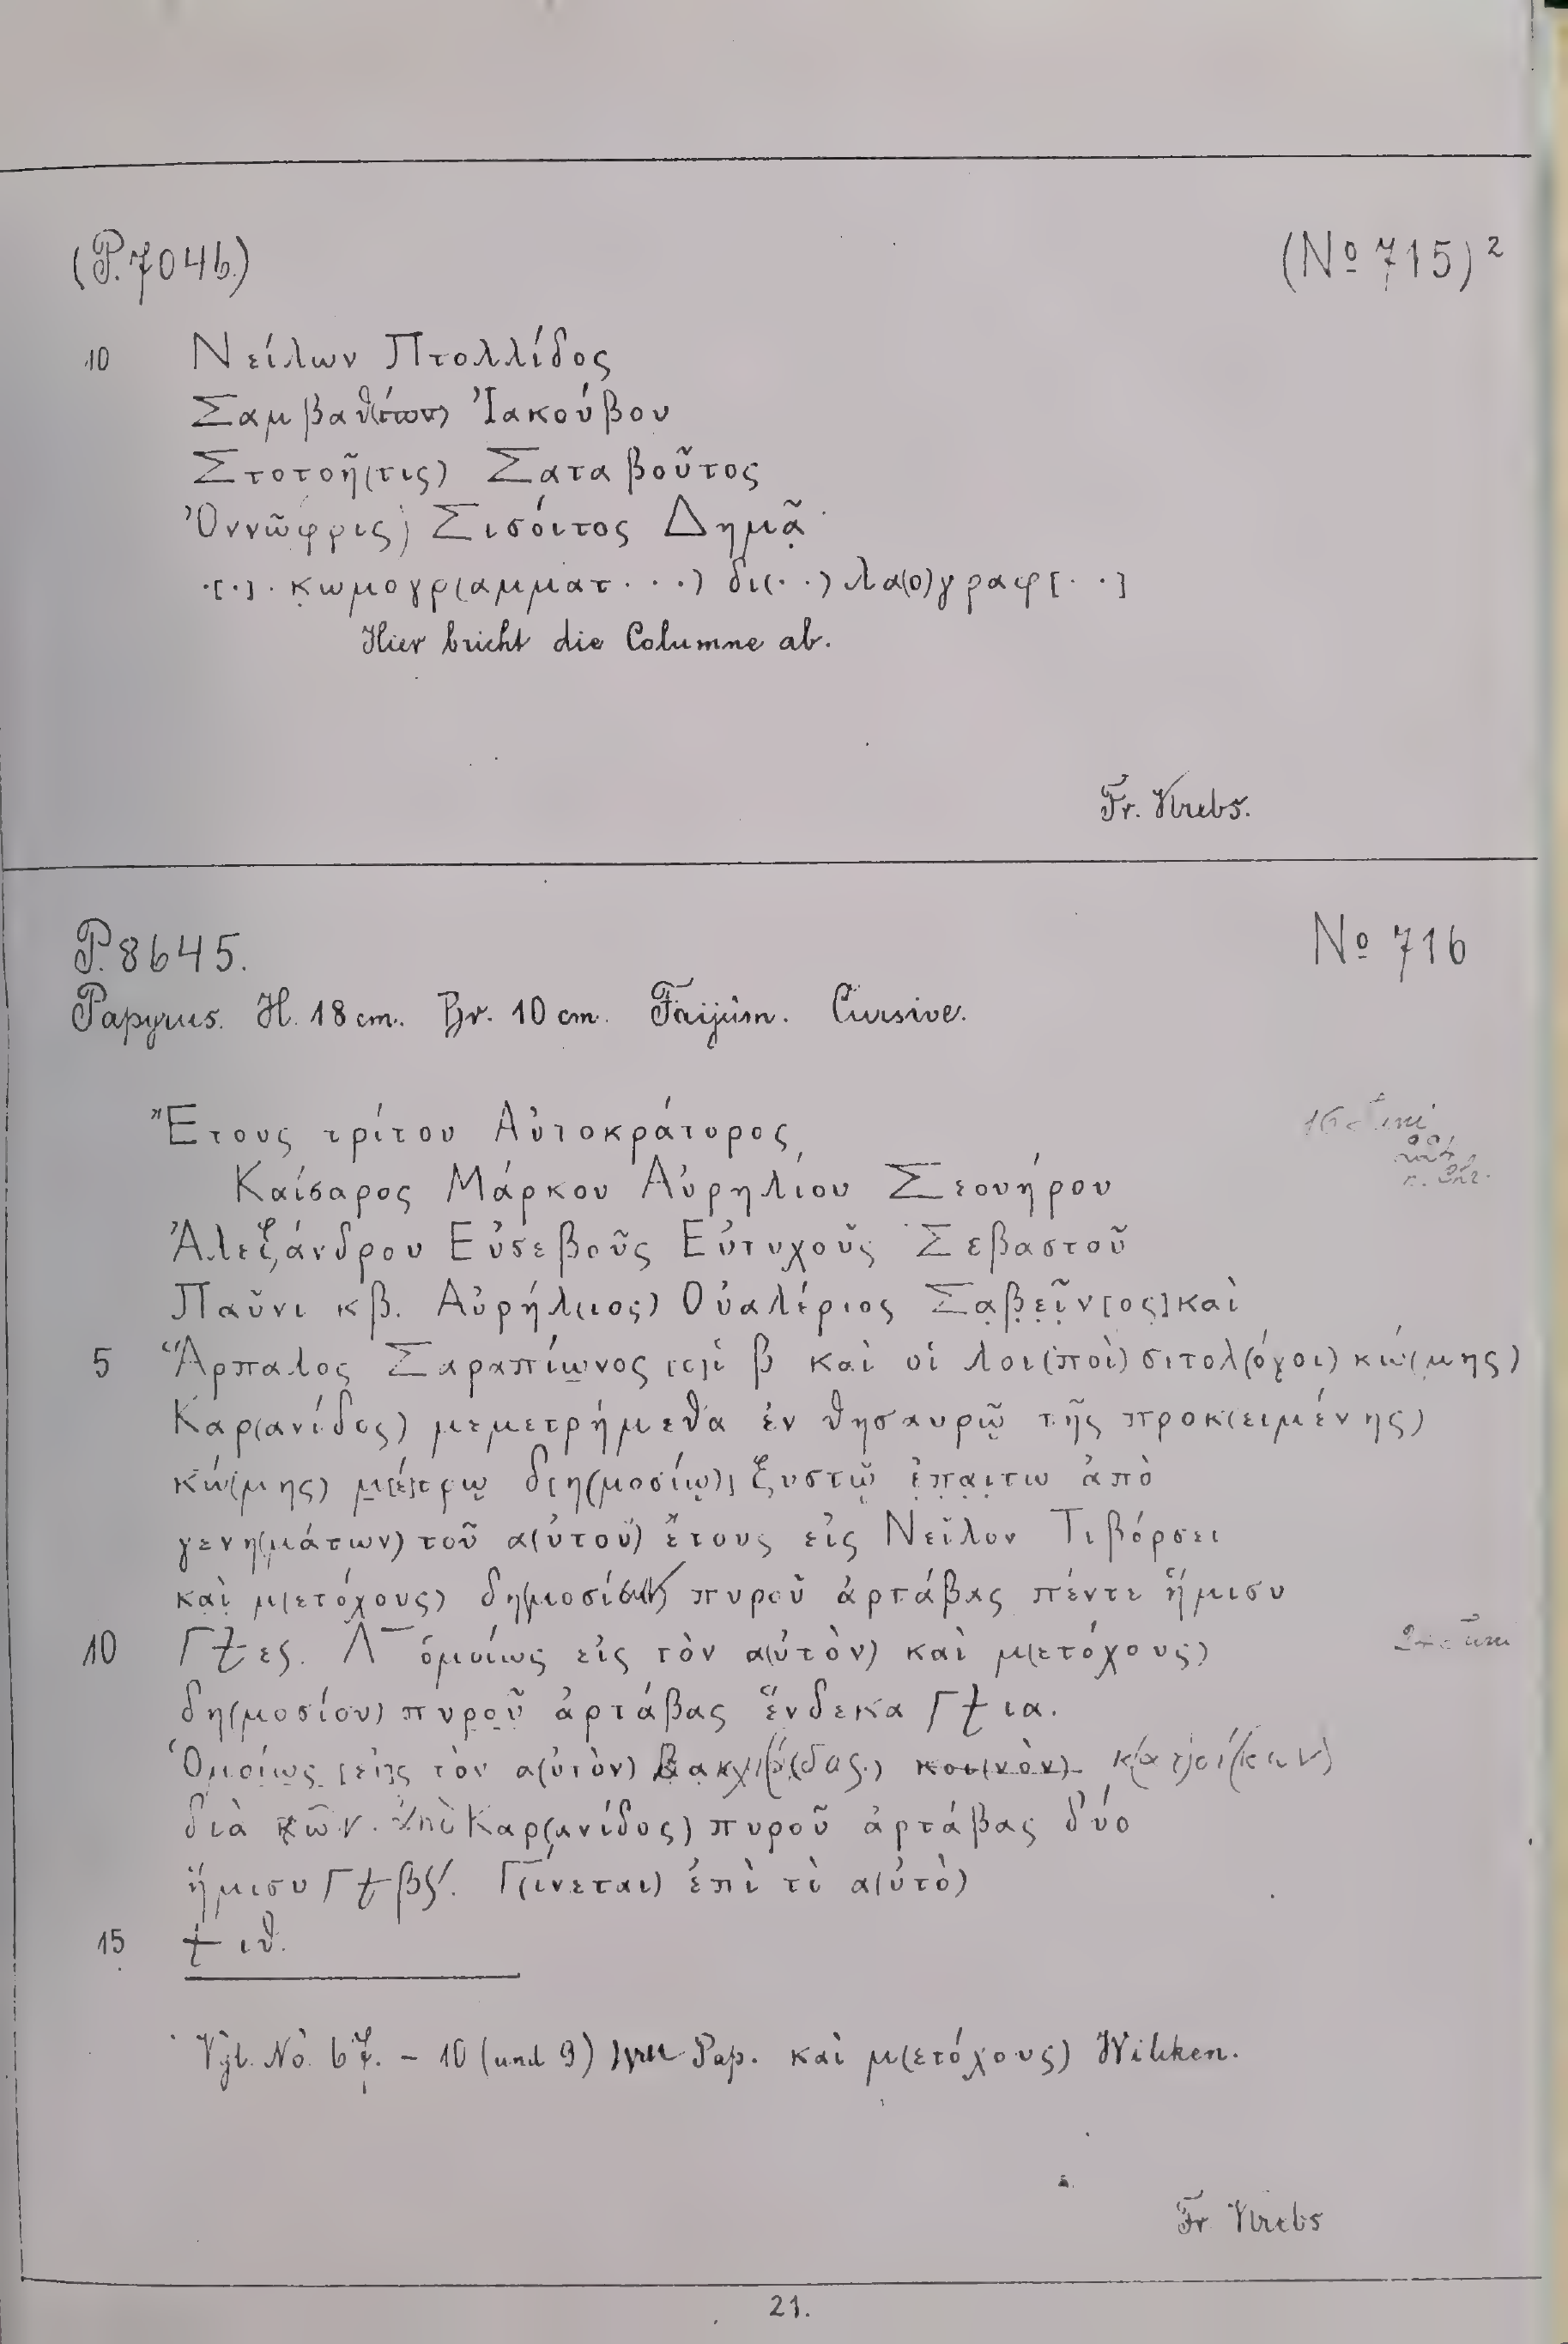 (P. 7046.) (No 715)²
10 Νείλων Πτολλίδος
Σαμβαθ(ίων) Ἰακούβου
Στοτοῆ(τις) Σαταβοῦτος
Ὀννῶφρις) Σισόιτος Δημᾶ
.[.]. κωμογρ(αμματ...) δι(..) λα(ο)γραφ[..]
Hier bricht die Columne ab.
Fr. Krebs.
P. 8645. No 716
Papyrus. H. 18 cm. Br. 10 cm. Faijûm. Cursive.
Ἔτους τρίτου Αὐτοκράτορος
Καίσαρος Μάρκου Αὐρηλίου Σεουήρου
Ἀλεξάνδρου Εὐσεβοῦς Εὐτυχοῦς Σεβαστοῦ
Παῦνι κβ. Αὐρήλ(ιος) Οὐαλέριος Σαβεῖν[ος] καὶ
5 Ἅρπαλος Σαραπίωνος [ο]ἱ β καὶ οἱ λοι(ποὶ) σιτολ(όγοι) κώ(μης)
Καρ(ανίδος) μεμετρήμεθα ἐν θησαυρῷ τῆς προκ(ειμένης)
κώ(μης) μ[έ]τρῳ δ[η(μοσίῳ)] ξυστῷ ἐπαιτω ἀπὸ
γενη(μάτων) τοῦ α(ὐτοῦ) ἔτους εἰς Νεῖλον Τιβόρσει
καὶ μ(ετόχους) δημοσί πυροῦ ἀρτάβας πέντε ἥμισυ
10 ὁμοίως εἰς τὸν α(ὐτὸν) καὶ μ(ετόχους)
δη(μοσίου) πυροῦ ἀρτάβας ἕνδεκα Γ𐅵 ια.
Ὁμοίως [εἰ]ς τὸν α(ὐτὸν) κοι(νὸν) κ(ατ)οί(κων)
διὰ τῶν ἀπὸ Καρ(ανίδος) πυροῦ ἀρτάβας δύο
ἥμισυ Γ(ίνεται) ἐπὶ τὸ α(ὐτὸ)
15 ιθ.
Vgl. No. 67. – 10 (und 9) Pap. καὶ μ(ετόχους) Wilcken.
Fr. Krebs
21.